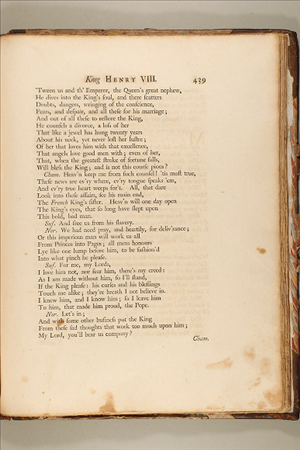 King HENRY VIII. 439
'Tween us and th' Emperor, the Queen's great nephew,
He dives into the King's soul, and there scatters
Doubts, dangers, wringing of the conscience,
Fears, and despair, and all these for his marriage;
And out of all these to restore the King,
He counsels a divorce, a loss of her
That like a jewel has hung twenty years
About his neck, yet never lost her lustre;
Of her that loves him with that excellence,
That angels love good men with; even of her,
That, when the greatest stroke of fortune falls,
Will bless the King; and is not this course pious?
Cham. Heav'n keep me from such counsel! 'tis most true,
These news are ev'ry where, ev'ry tongue speaks 'em,
And ev'ry true heart weeps for't. All, that dare
Look into these affairs, see his main end,
The French King's sister. Heav'n will one day open
The King's eyes, that so long have slept upon
This bold, bad man.
Suf. And free us from his slavery.
Nor. We had need pray, and heartily, for deliv'rance;
Or this imperious man will work us all
From Princes into Pages; all mens honours
Lye like one lump before him, to be fashion'd
Into what pinch he please.
Suf. For me, my Lords,
I love him not, nor fear him, there's my creed:
As I am made without him, so I'll stand,
If the King please: his curses and his blessings
Touch me alike; they're breath I not believe in.
I knew him, and I know him; so I leave him
To him, that made him proud, the Pope.
Nor. Let's in;
And with some other business put the King
From these sad thoughts that work too much upon him;
My Lord, you'll bear us company?
Cham.